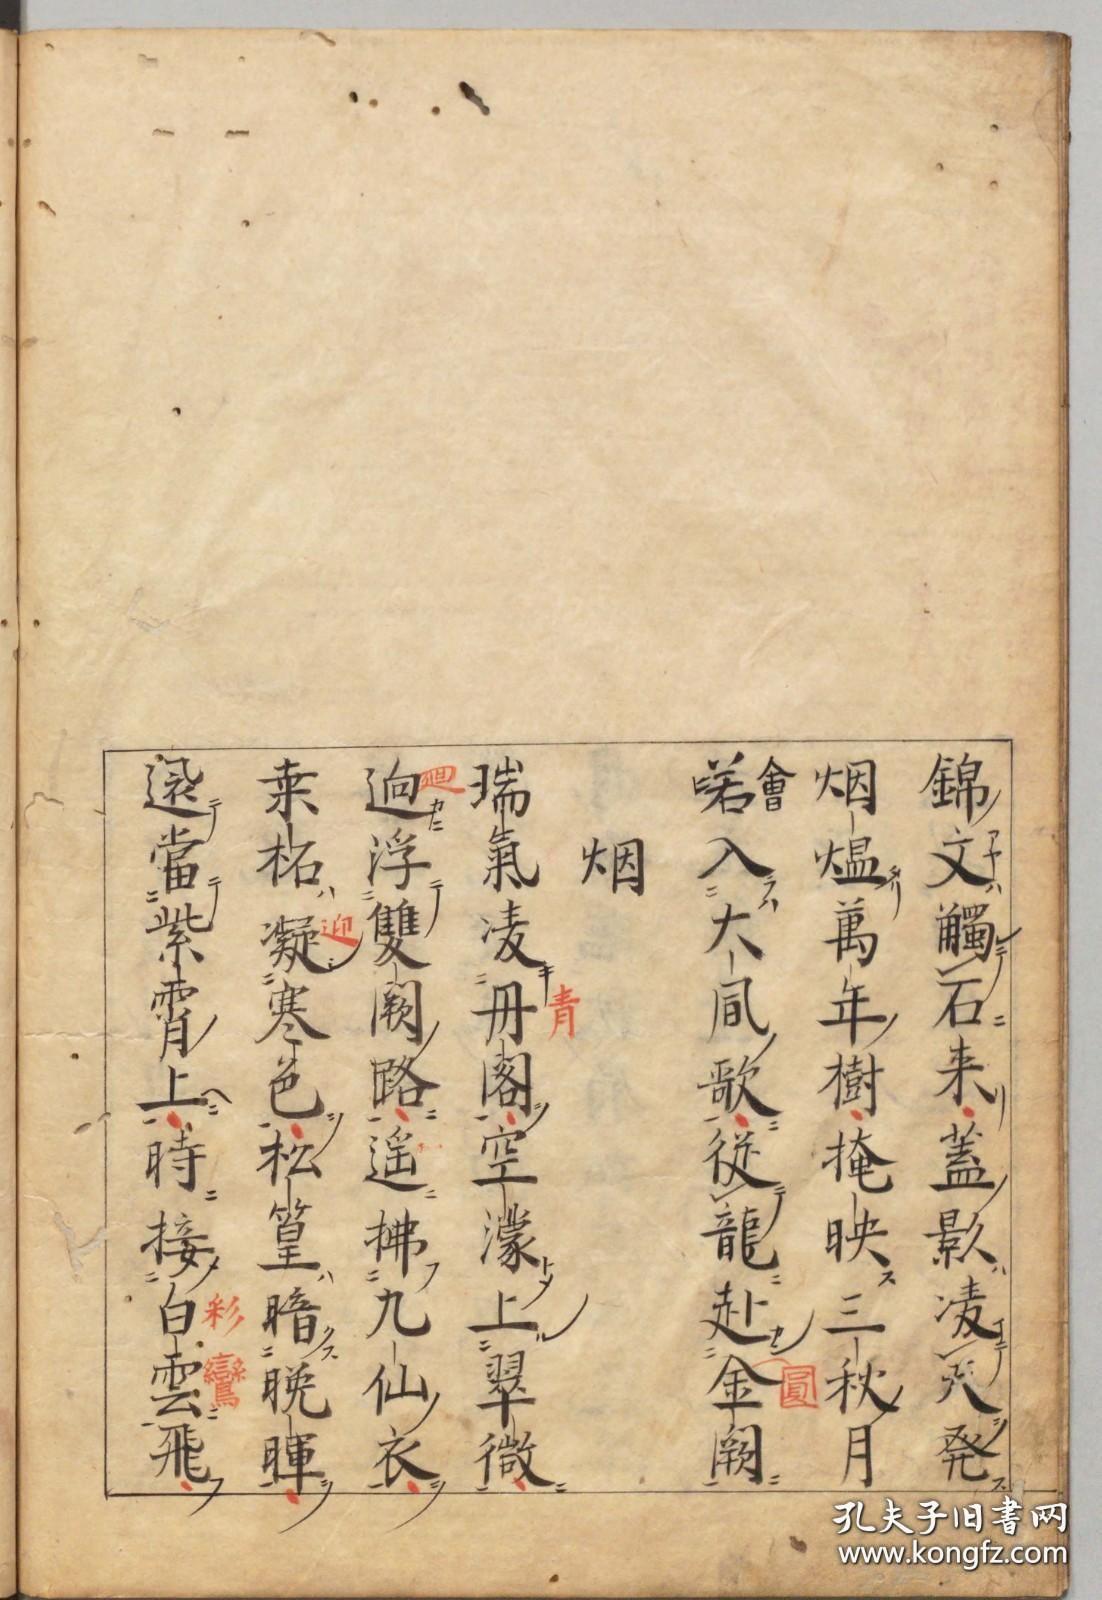 錦文觸石来蓋影凌天発
烟煴萬年樹掩映三秋月
會
若入大風歌従龍赴金闕
圓
烟
瑞氣凌丹閣空濛上翠微
青
迥浮雙闕路遥拂九仙衣
迴
桒柘凝寒色松篁暗晩暉
迎
還當紫霄上時接白雲飛
彩鸞
孔夫子旧书网
www.kongfz.com